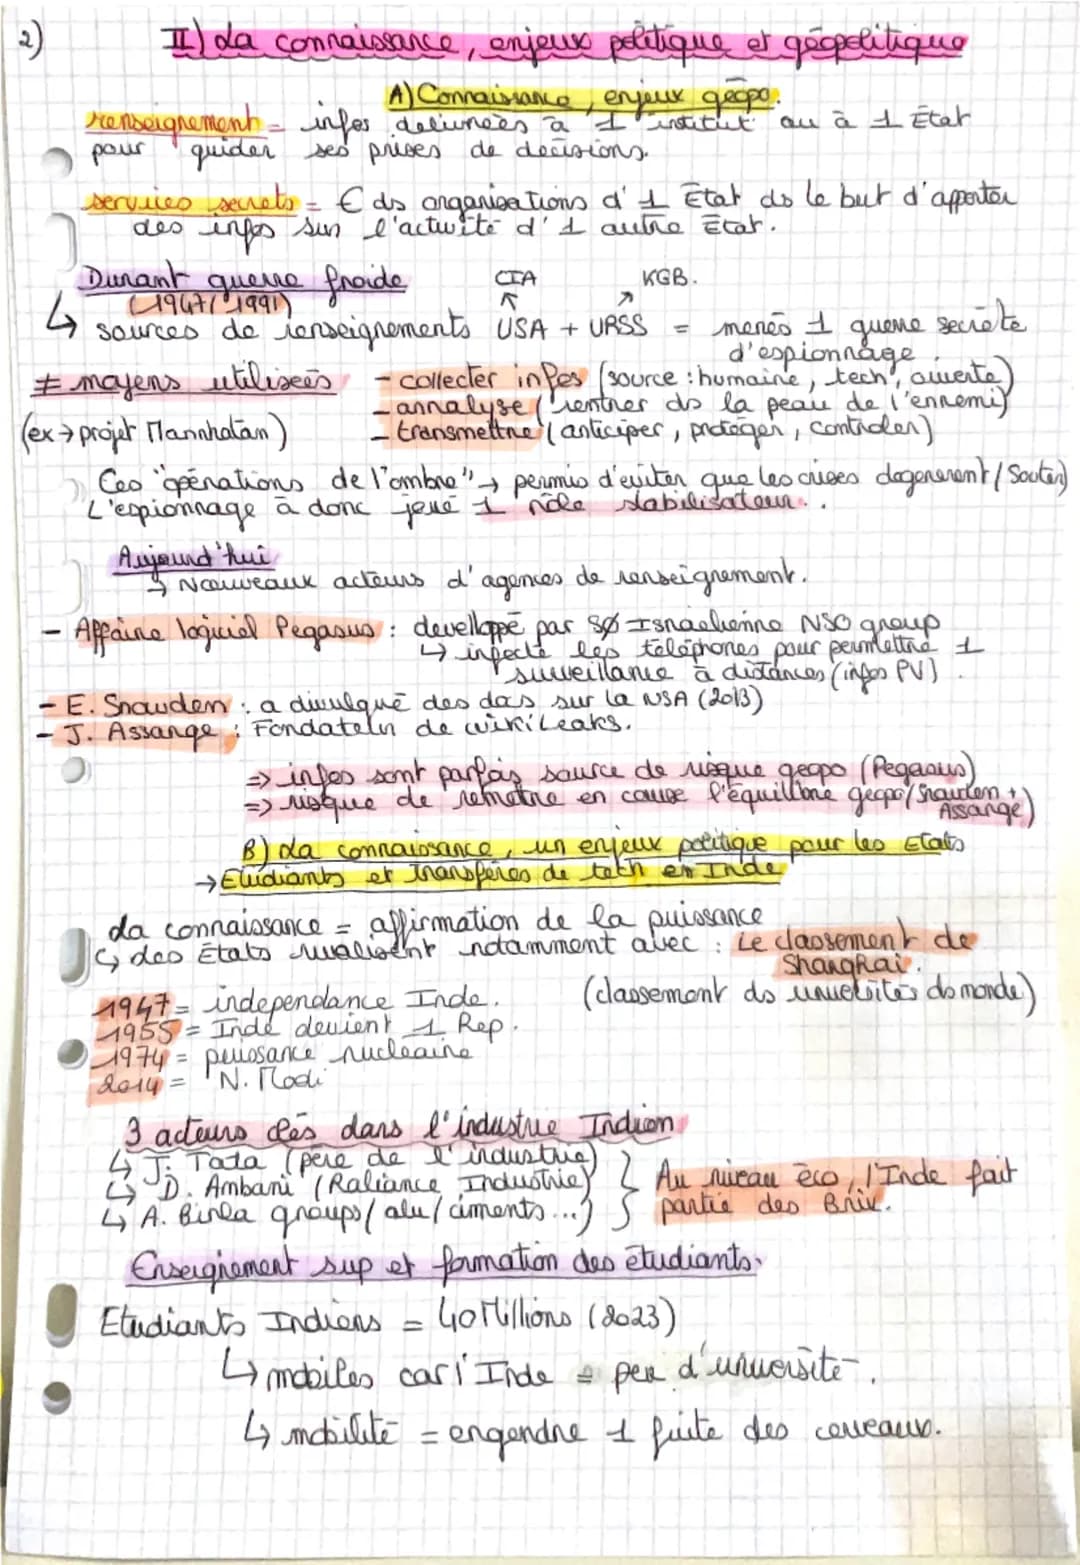 2)
II) La connaissance, enjeux politique et géopolitique
A) Connaissance, enjeux géopo.
renseignement = infos délivrées à 1 institut ou à 1 État
pour guider ses prises de décisions.
services secrets = € ds organisations d'1 État ds le but d'apporter
des infos sur l'activité d'1 autre État.
Durant guerre froide CIA KGB.
(1947/1991)
↳ sources de renseignements USA + URSS = menés 1 guerre secrète
d'espionnage.
≠ moyens utilisées - collecter infos (source : humaine, tech, ouverte)
- annalyse (rentrer ds la peau de l'ennemi)
(ex → projet Mannhatan) - transmettre (anticiper, protéger, controler)
Ces "opérations de l'ombre" → permis d'éviter que les crises dégénerent (Soutou)
L'espionnage à donc joué 1 rôle stabilisateur.
Aujourd'hui
↳ Nouveaux acteurs d'agences de renseignement.
- Affaire logiciel Pegasus : develloppé par sø Israelienne NSO group
↳ infecte les téléphones pour permettre 1
surveillance à distances (infos PV).
- E. Snowden : a divulgué des docs sur la NSA (2013)
- J. Assange : Fondateur de WikiLeaks.
⇒ infos sont parfois source de risque geopo (Pegasus)
⇒ risque de remetre en cause l'équilibre geopo (Snowden +
Assange)
B) La connaissance, un enjeux politique pour les Etats
→ Etudiants et transferes de tech en Inde
La connaissance = affirmation de la puissance
↳ des États rivalisent notamment avec : Le classement de
Shanghai.
(classement ds universités ds monde)
1947 = independance Inde.
1955 = Inde devient 1 Rep.
1974 = puissance nucleaire
2014 = N. Modi
3 acteurs clés dans l'industrie Indien
↳ J. Tata (père de l'industrie)
↳ D. Ambani (Raliance Industrie)
↳ A. Birla groups (alu/ciments...)
Au niveau éco, l'Inde fait
partie des Bric.
Enseignement sup et formation des étudiants.
Etudiants Indiens = 40 Millions (2023)
↳ mobiles car l'Inde = peu d'université.
↳ mobilité = engendre 1 fuite des cerveaux.